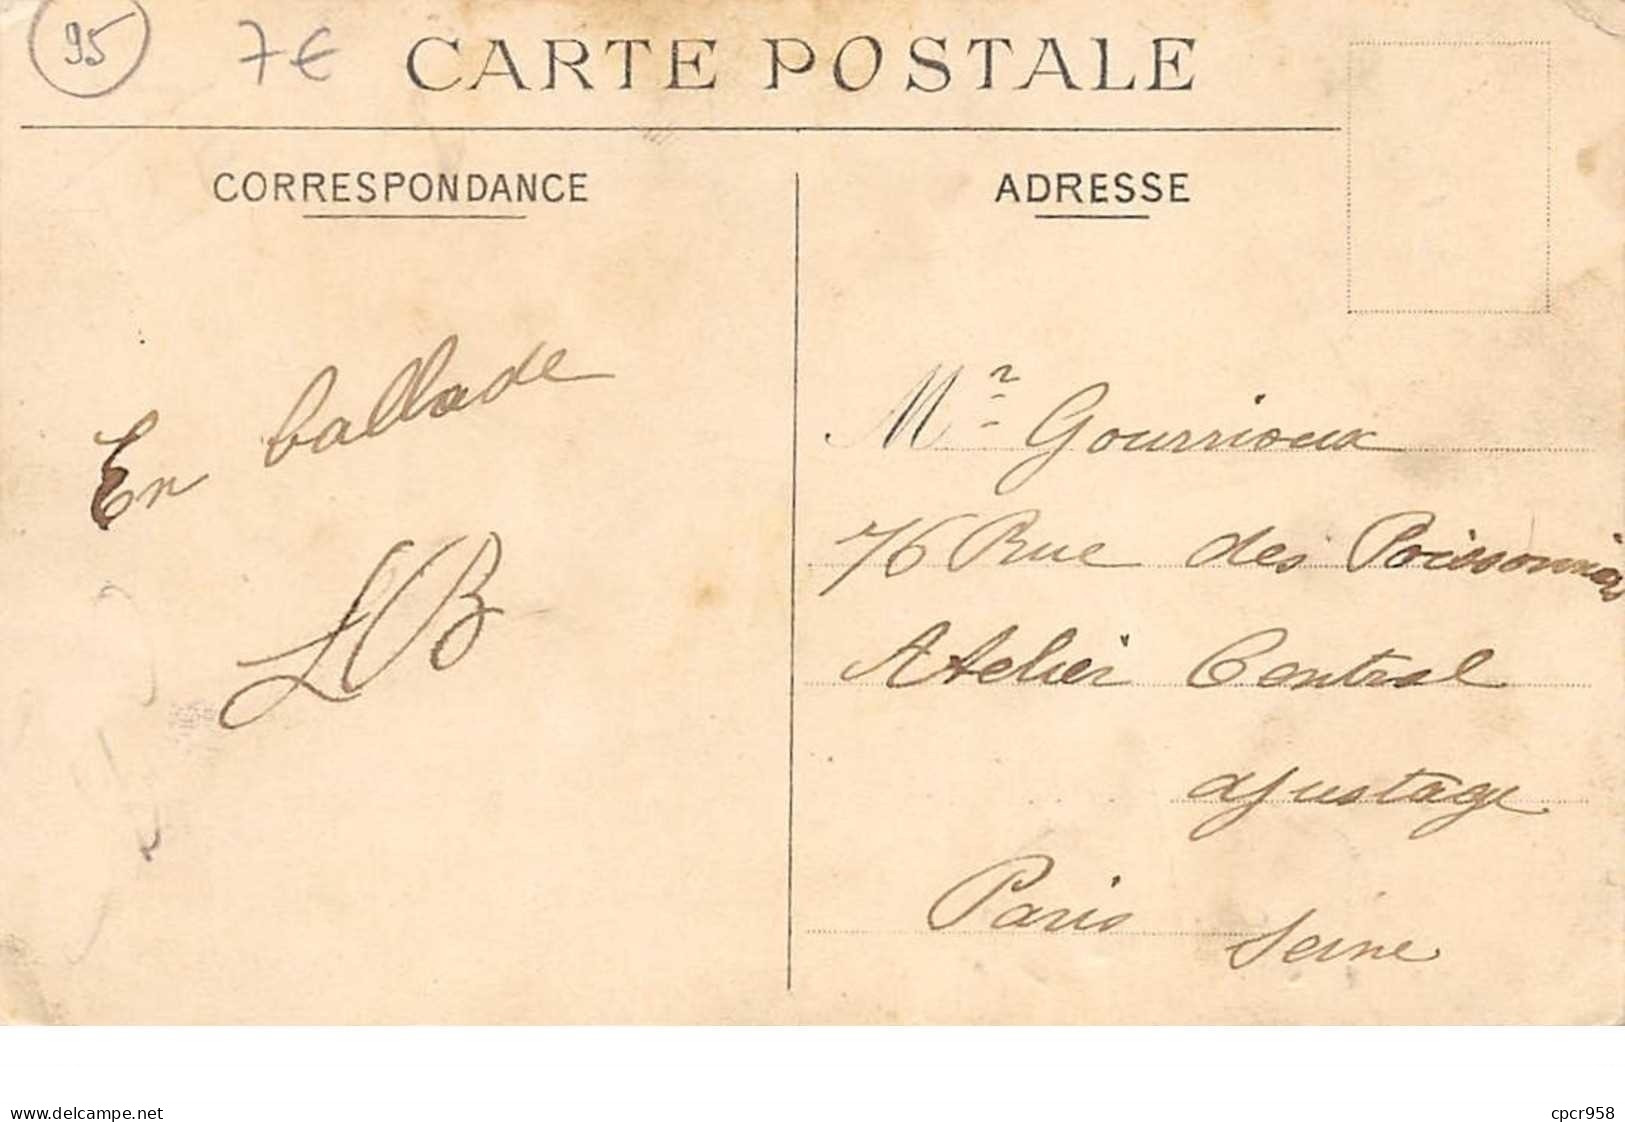 95
7€
CARTE POSTALE
CORRESPONDANCE
ADRESSE
En ballade
LB
Mr Gourrioux
76 Rue des Poissonniers
Atelier Central
ajustage
Paris
Seine
www.delcampe.net
cpcr958